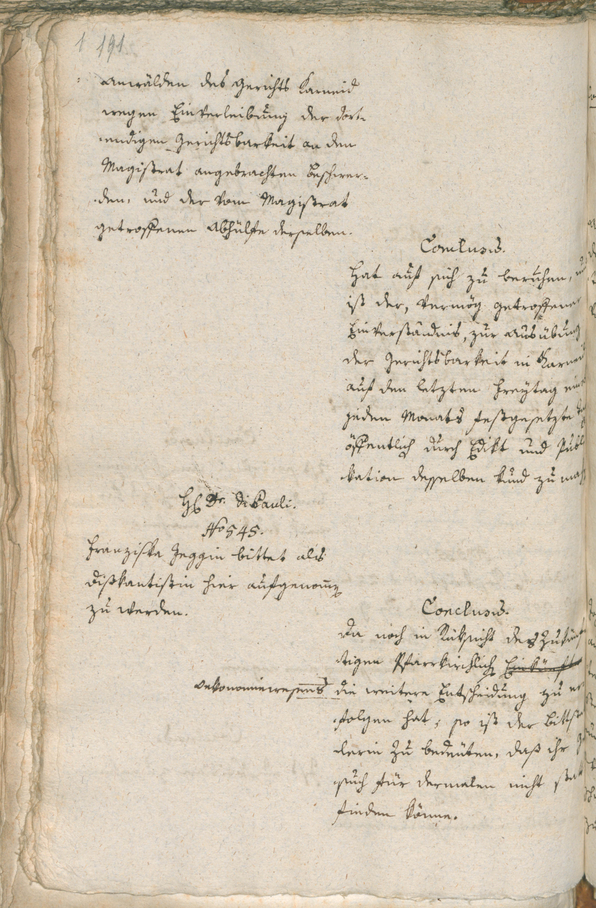 1 191
anwälden des Gerichts Karneid
wegen Einverleibung der dort-
endigen Gerichtsbarkeit an den
Magistrat angebrachten Beschwer-
den, und der vom Magistrat
getroffenen Abhülfe derselben.
Conclusis.
Hat auf sich zu beruhen, und
ist der, vermög getroffener
Einverständnis, zur Ausübung
der Gerichtsbarkeit in Karneid
auf den letzten Freytag eines
jeden Monats festgesetzte
öffentlich durch Edikt und Publi
kation desselben kund zu mach
H. Dr. Di Pauli.
No 545.
Franziska Jeggin bittet als
Diskantistin hier aufgenomm
zu werden.
Conclusis.
Da noch in Rüksicht des Zukünf
tigen Pfarrkirchlich Einkünfte
oekonomiewesens die weitere Entscheidung zu er
folgen hat; so ist der Bittstel
lerin zu bedeuten, daß ihr Ge
such für dermalen nicht statt
finden könne.